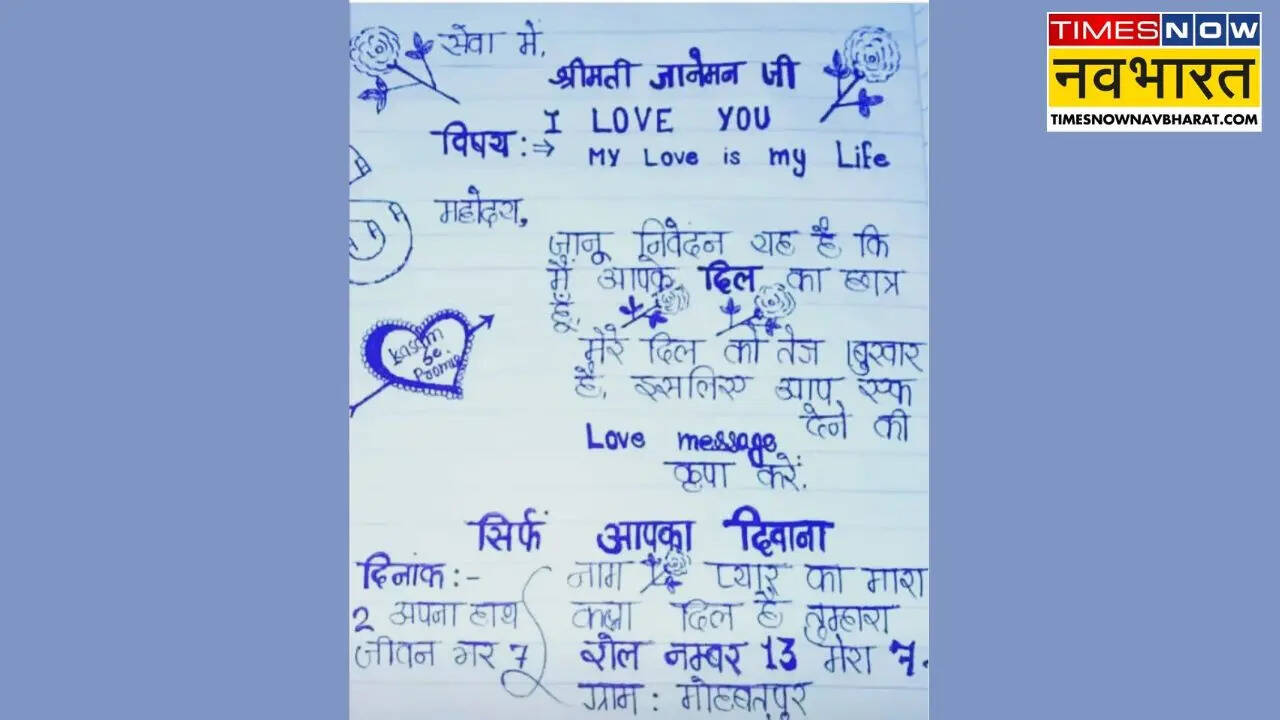 TIMES NOW
नवभारत
TIMESNOWNAVBHARAT.COM
सेवा में,
श्रीमती जानेमन जी
I LOVE YOU
विषय :⇒ My Love is my Life
महोदया,
जानू निवेदन यह है कि
मैं आपके दिल का छात्र
हूँ,
मेरे दिल को तेज बुखार
है, इसलिए आप एक
देने की
Love message
कृपा करें.
kasam
se
सिर्फ आपका दिवाना
दिनांक :-
2 अपना हाथ
जीवन भर 7
नाम प्यार का मारा
कक्षा दिल है तुम्हारा
रोल नम्बर 13 मेरा 7.
ग्राम : मोहब्बतपुर